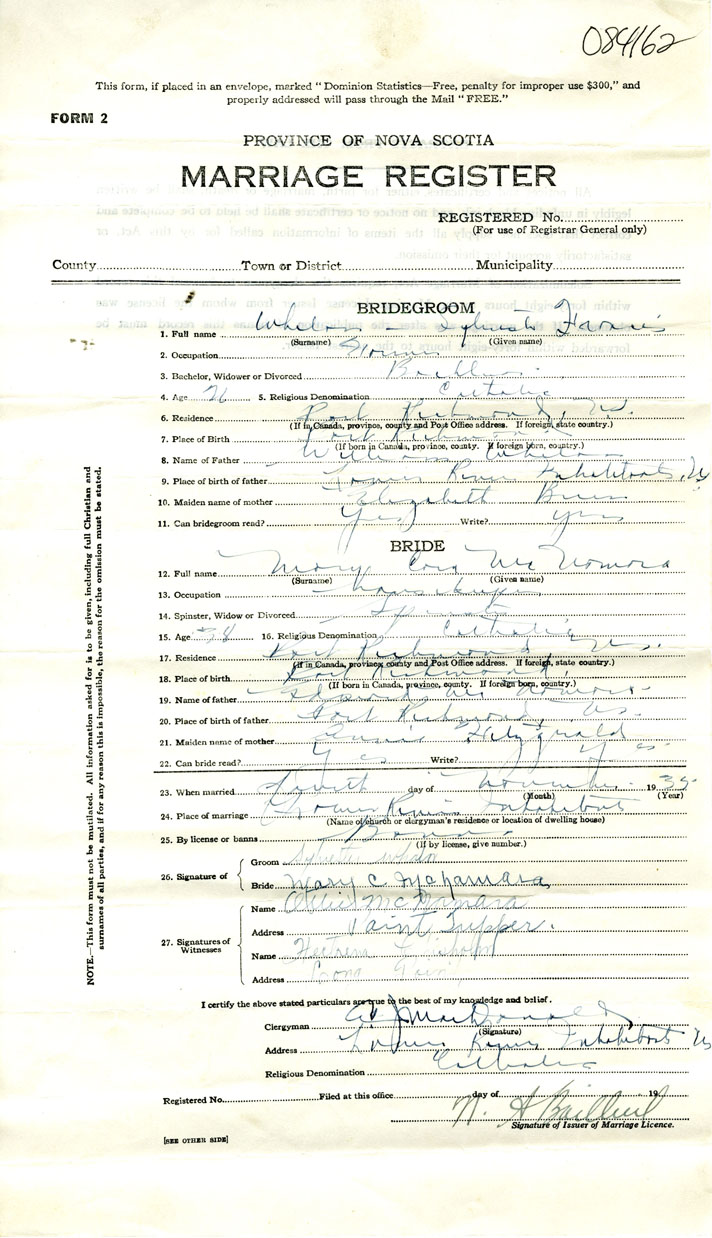 084162
This form, if placed in an envelope, marked "Dominion Statistics—Free, penalty for improper use $300," and
properly addressed will pass through the Mail "FREE."
FORM 2
PROVINCE OF NOVA SCOTIA
MARRIAGE REGISTER
REGISTERED No.
(For use of Registrar General only)
County Town or District Municipality
BRIDEGROOM
1. Full name Whelan - Sylvester Francis
(Surname) (Given name)
2. Occupation
3. Bachelor, Widower or Divorced Bachelor
4. Age 26 5. Religious Denomination Catholic
6. Residence Port Richmond, N.S.
(If in Canada, province, county and Post Office address. If foreign, state country.)
7. Place of Birth Port Richmond
(If born in Canada, province, county. If foreign born, country.)
8. Name of Father William Whelan
9. Place of birth of father Lower River Inhabitants, N.S
10. Maiden name of mother Elizabeth
11. Can bridegroom read? Yes Write? yes
BRIDE
12. Full name Mary Cora McNamara
(Surname) (Given name)
13. Occupation
14. Spinster, Widow or Divorced Spinster
15. Age 16. Religious Denomination Catholic
17. Residence Port Richmond N.S.
(If in Canada, province, county and Post Office address. If foreign, state country.)
18. Place of birth Port Richmond
(If born in Canada, province, county. If foreign born, country.)
19. Name of father McNamara
20. Place of birth of father Port Richmond, N.S.
21. Maiden name of mother Annie Fitzgerald
22. Can bride read? Yes Write? Yes
23. When married day of November 1935
(Month) (Year)
24. Place of marriage Lower River Inhabitants
(Name of church or clergyman's residence or location of dwelling house)
25. By license or banns Banns
(If by license, give number.)
26. Signature of
Groom Sylvester Whelan
Bride Mary C McNamara
27. Signatures of Witnesses
Name McNamara
Address Point Tupper.
Name Chisholm
Address
I certify the above stated particulars are true to the best of my knowledge and belief.
Clergyman A J MacDonald
(Signature)
Address Lower River Inhabitants N.S
Religious Denomination Catholic
Registered No. Filed at this office day of 19
Signature of Issuer of Marriage Licence.
[SEE OTHER SIDE]
NOTE.—This form must not be mutilated. All information asked for is to be given, including full Christian and
surnames of all parties, and if for any reason this is impossible, the reason for the omission must be stated.